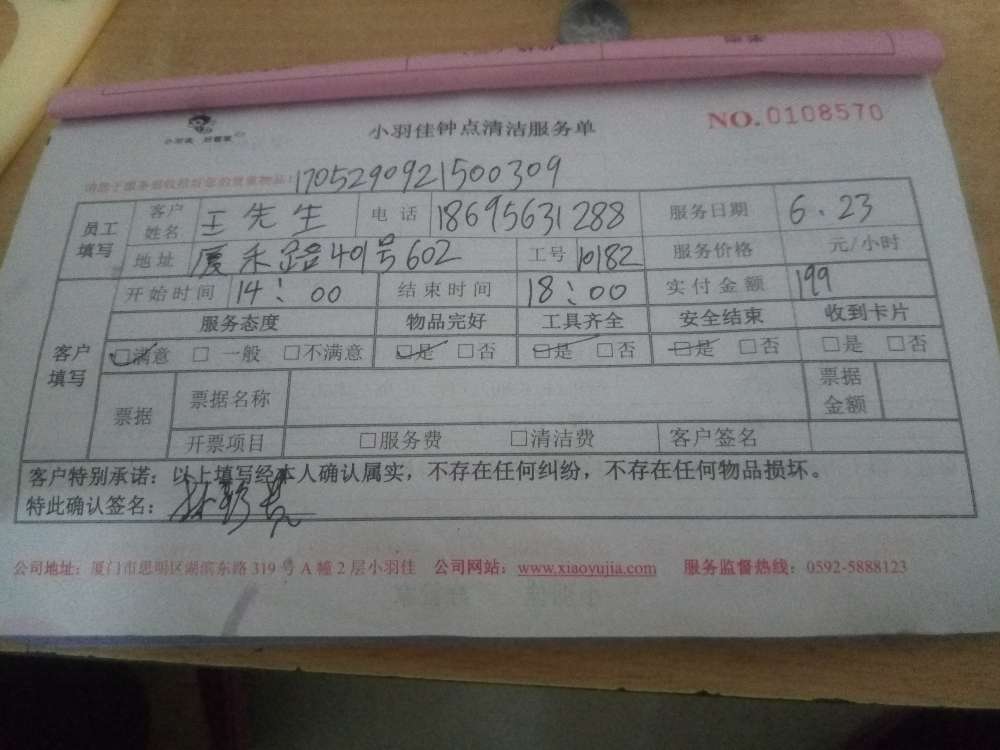 小羽佳 好管家
小羽佳钟点清洁服务单
NO.0108570
1705290921500309
员工填写 客户姓名 王先生 电话 18695631288 服务日期 6.23
地址 厦禾路401号602 工号 10182 服务价格 元/小时
客户填写 开始时间 14:00 结束时间 18:00 实付金额 199
服务态度 物品完好 工具齐全 安全结束 收到卡片
□满意 □一般 □不满意 □是 □否 □是 □否 □是 □否 □是 □否
票据 票据名称 票据金额
开票项目 □服务费 □清洁费 客户签名
客户特别承诺：以上填写经本人确认属实，不存在任何纠纷，不存在任何物品损坏。
特此确认签名：
公司地址：厦门市思明区湖滨东路 319 号 A 幢 2 层小羽佳 公司网站：www.xiaoyujia.com 服务监督热线：0592-5888123